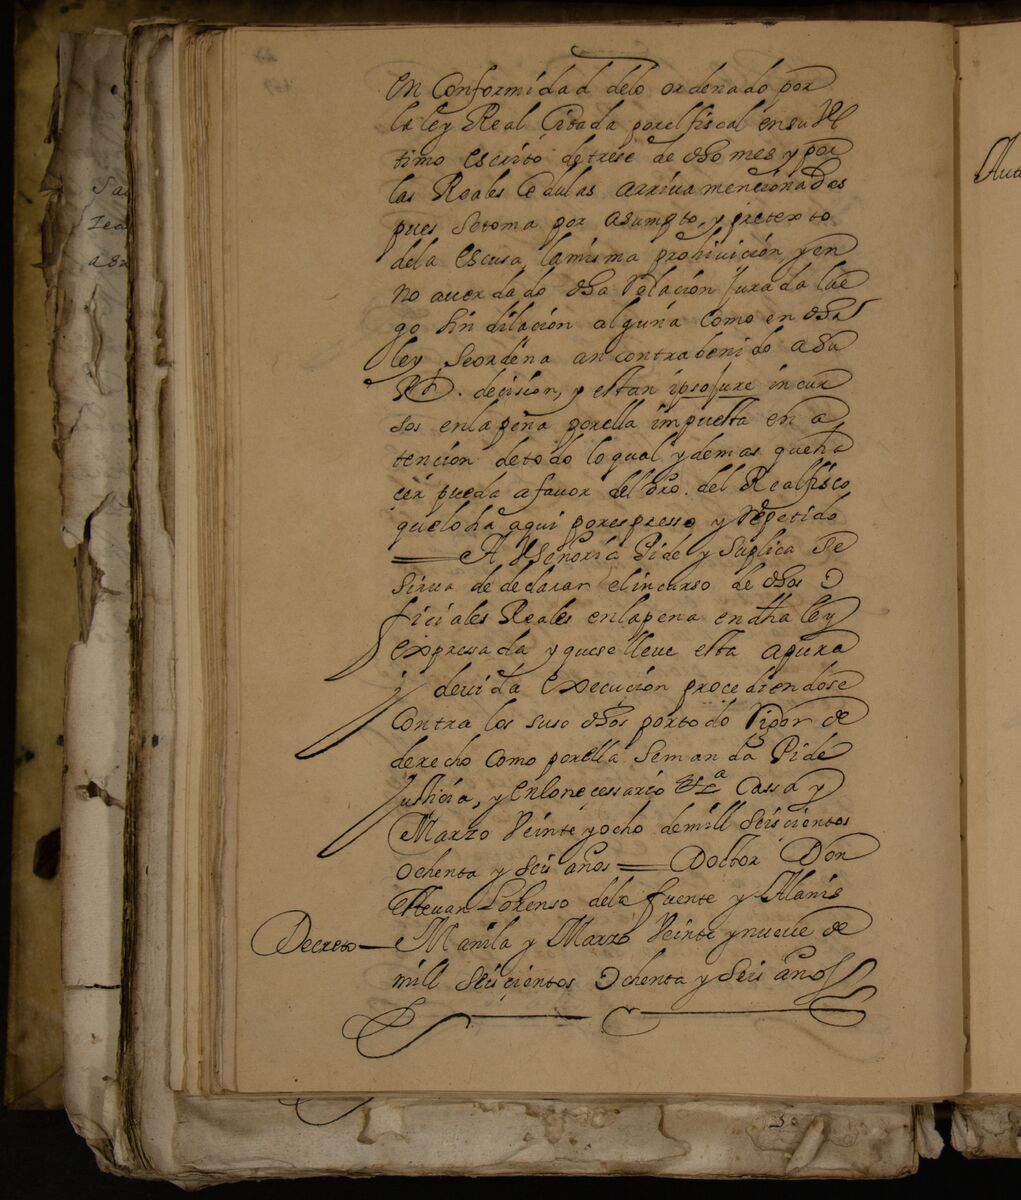 en Conformidad delo ordenado por
la ley Real Citada porelfiscal ensu Vl
timo escrito detrese de dho mes y por
las Reales Cedulas arriva mencionadas
pues setoma por asumpto, y pretexto
dela escusa lamisma prohivición y en
no aver dado dha Relación Jurada lue
go sin dilación alguna como en dha
ley seordena an contrabenido a su
Rl. decisión, y estan ipsojure incur
sos enlapena porella impuesta en a
tención detodo loqual y demas que ha
cer pueda afavor del dro. del Realfisco
queloha aqui porespresso y Repetido
A Vseñoria Pide y Suplica Se
sirva de declarar elincurso de dhos O
ficiales Reales enlapena en dha ley
expresada y quese lleve esta apura
y devida execución procediendose
contra los suso dhos portodo Rigor de
derecho como porella semanda Pide
Justicia, y enlonecessario &a Cassa y
Marzo Veinte yocho demill Seiscientos
ochenta y seis años = Doctor Don
estevan Lorenso dela fuente y Alanis
Decreto — Manila y Marzo Veinte ynueve de
mill Seiscientos Ochenta y Seis años
Auto